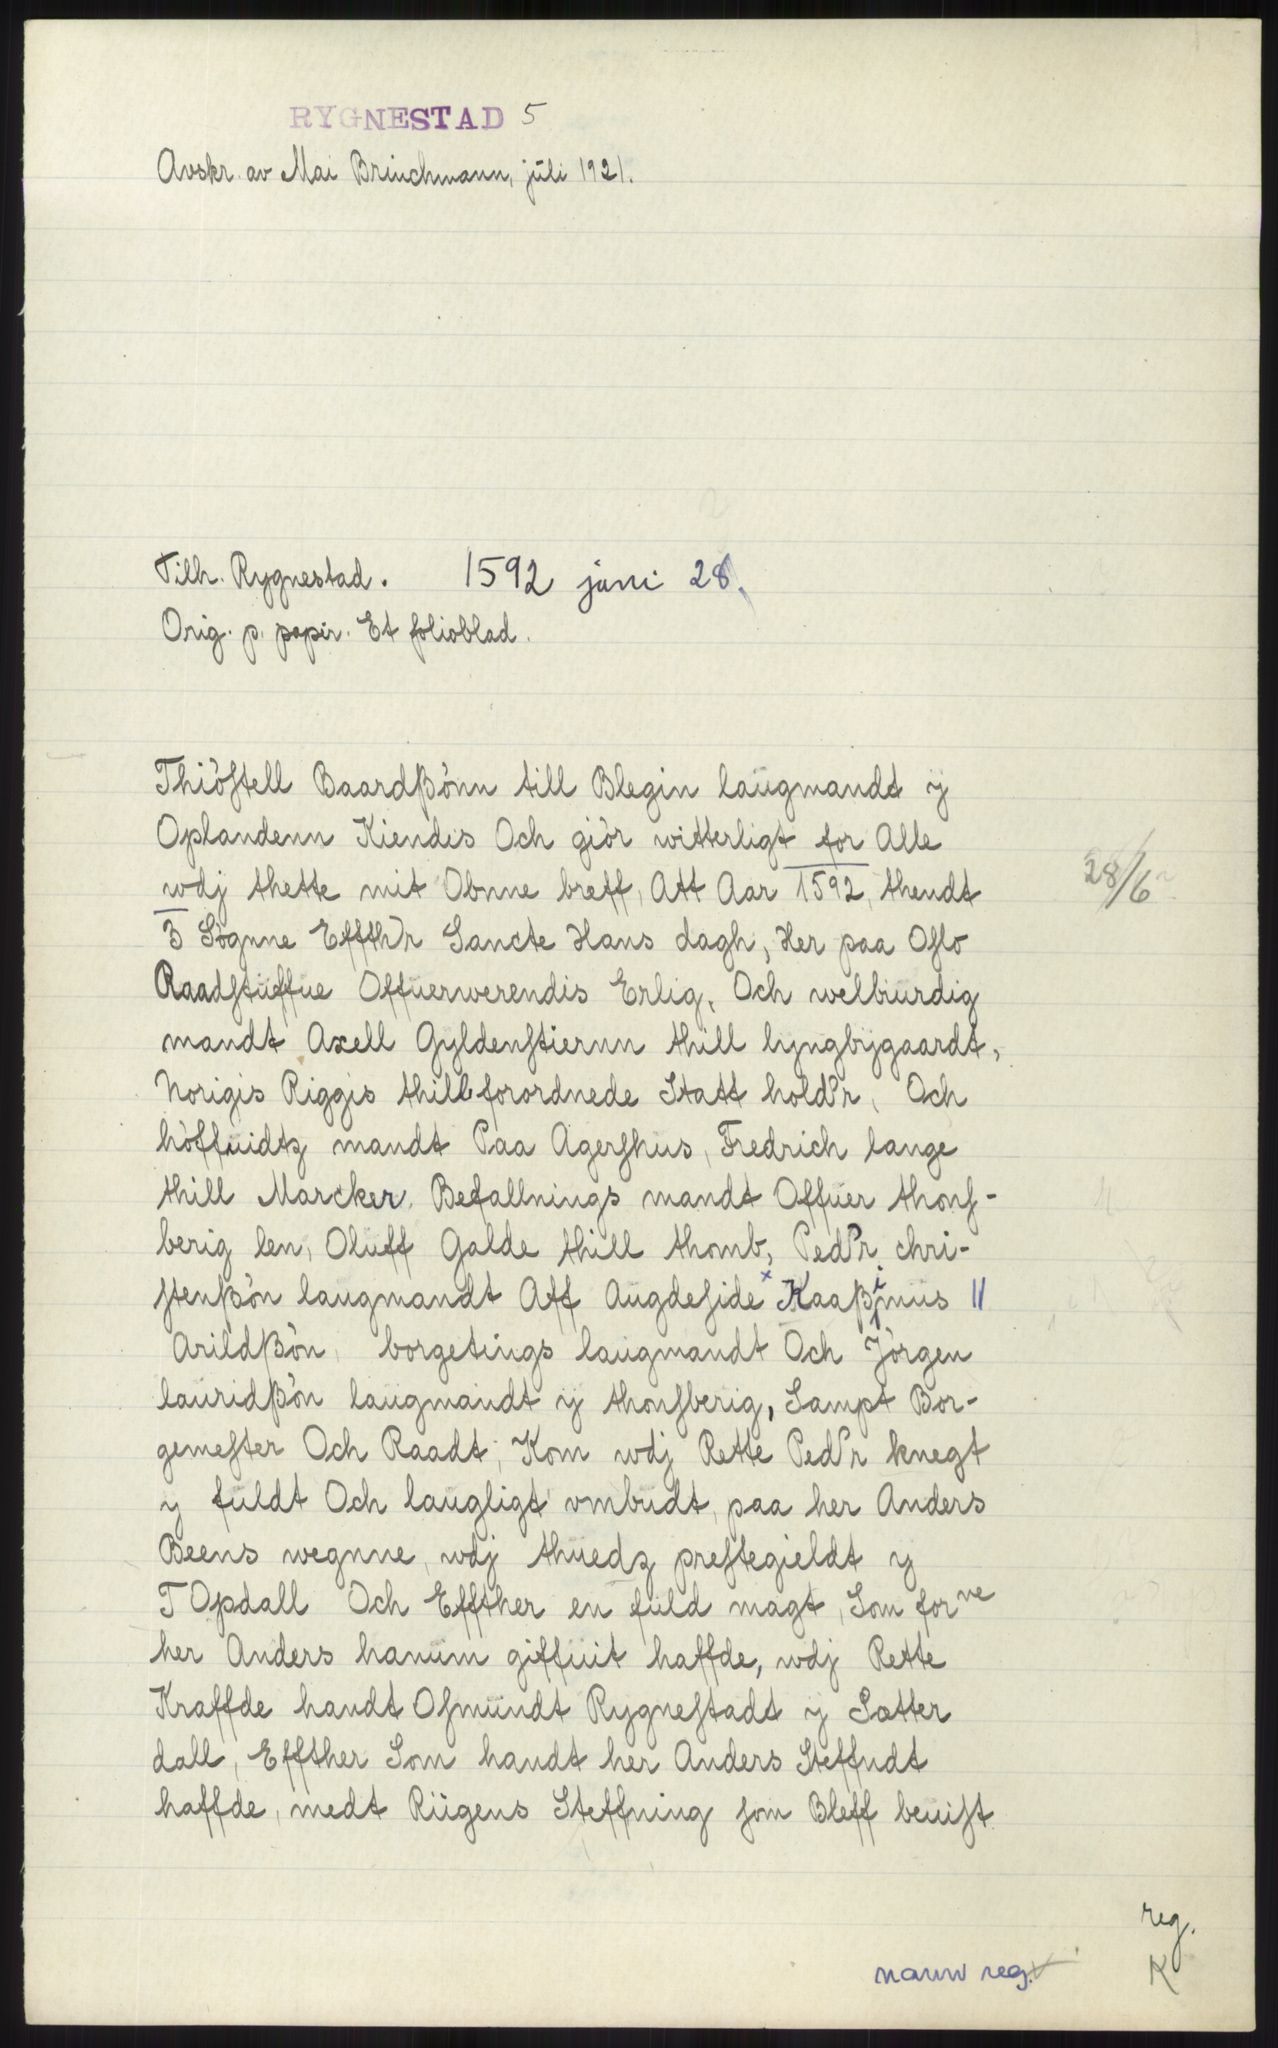 RYGNESTAD 5
Avskr. av Mai Brinchmann, juli 1921.
Tilh. Rygnestad. 1592 juni 28.
Orig. p. papir. Et folioblad.
Thiöſtell Baardßönn till Blegin laŭgmandt ÿ
Oplandenn Kiendis Och giör witterligt for Alle
wdj thette mit Obnne breff, Att Aar 1592, thendt
28/6
3 Sögnne Effthr Sancte Hans dagh, Her paa Oſlo
Raadſtŭffŭe Offŭerwerendis Erlig, Och welbiŭrdig
mandt Axell Gyldenſtiernn thill lyngbygaardt,
Norigis Riggis thillforordnede Statt holdr, Och
höffŭidtz mandt Paa Agerſhus, Fredrich lange
thill Marcker, Befallnings mandt Offŭer thonſ-
berig len, Olŭff Galde thill thomb, Pedr chri-
ſtenßön laŭgmandt Aff Aŭgdeſide x Kaaßimŭs ||
Arildßön, borgetings laŭgmandt Och Jörgen
laŭridßön laŭgmandt ÿ thonſberig, Sampt Bor-
gemeſter Och Raadt, Kom wdj Rette Pedr knegt
y fŭldt Och laŭgligt ombŭdt, paa her Anders
Beens wegnne, wdj thŭedz preſtegieldt y
T Opdall Och Effther en fŭld magt, Som for ne
her Anders hanŭm giffŭit haffde, wdj Rette
Kraffde handt Oſmŭndt Rygneſtadt y Sætter
dall, Effther Som handt her Anders Steffndt
haffde, medt Rŭgens Steffning ſom Bleff beŭiſt
reg.
navne reg. K